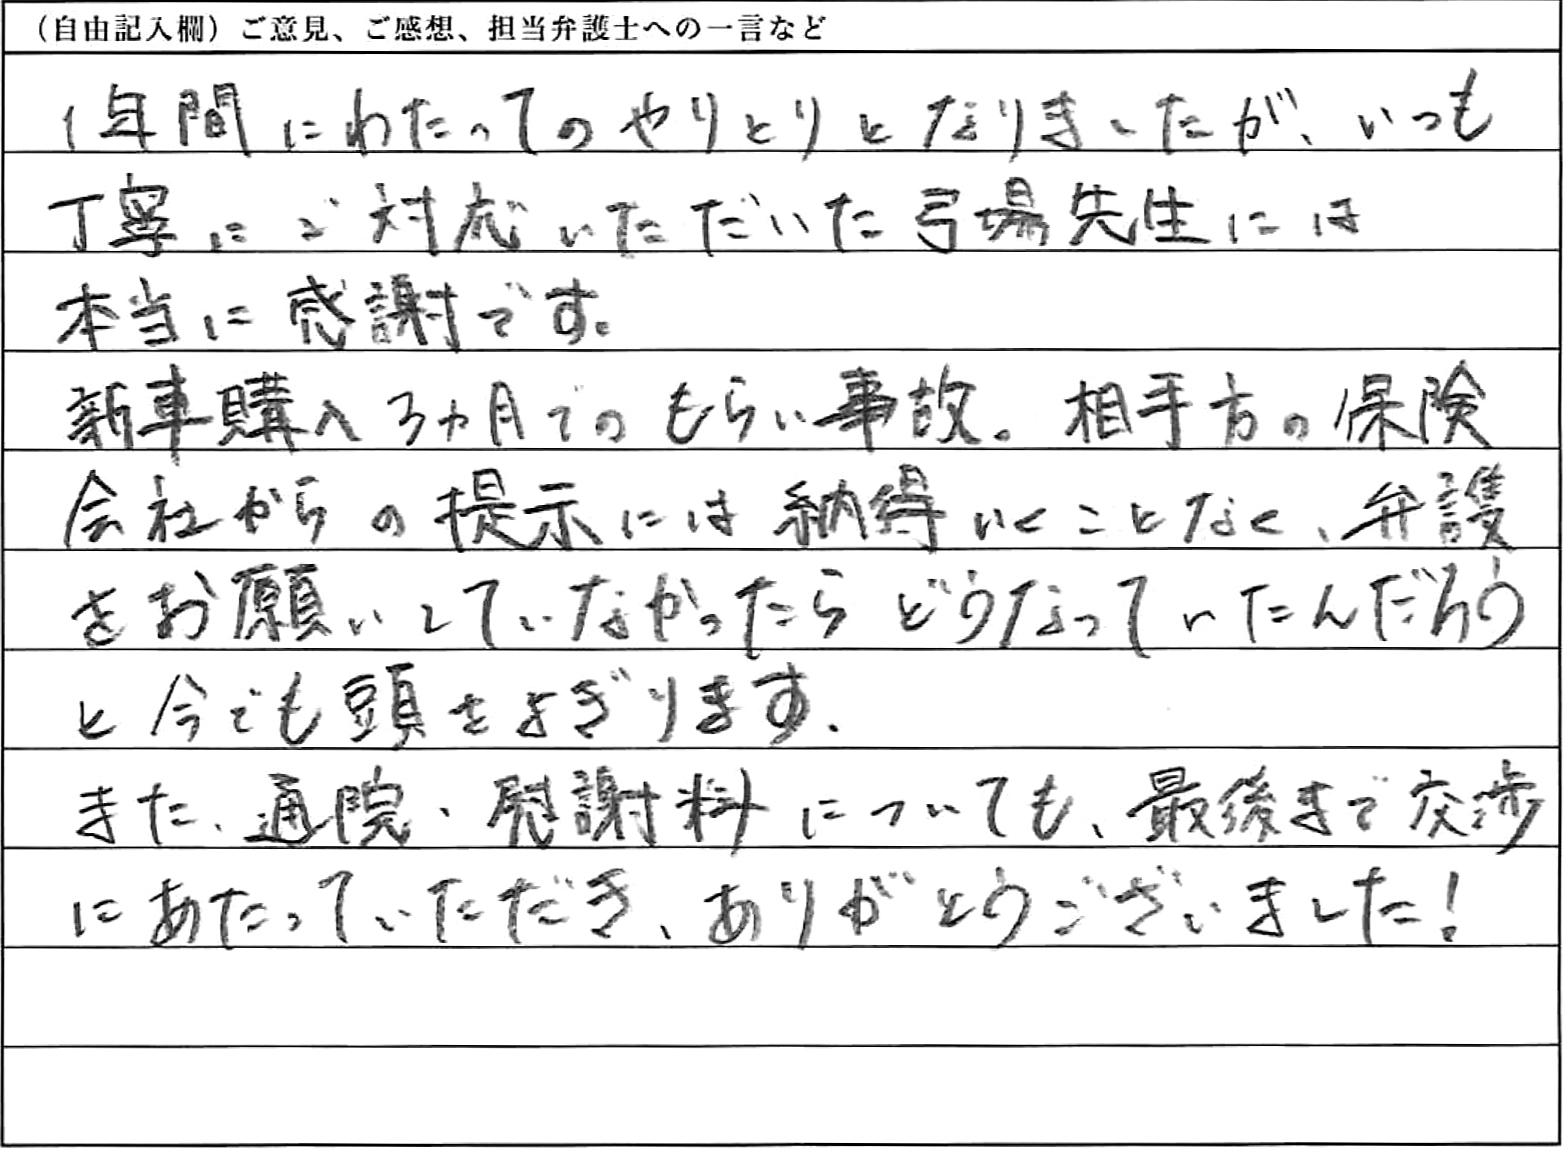 （自由記入欄）ご意見、ご感想、担当弁護士への一言など
1年間にわたってのやりとりとなりましたが、いつも
丁寧にご対応いただいた弓場先生には
本当に感謝です。
新車購入3ヵ月でのもらい事故。相手方の保険
会社からの提示には納得いくことなく、弁護
をお願いしていなかったらどうなっていたんだろう
と今でも頭をよぎります。
また、通院・慰謝料についても、最後まで交渉
にあたっていただき、ありがとうございました！